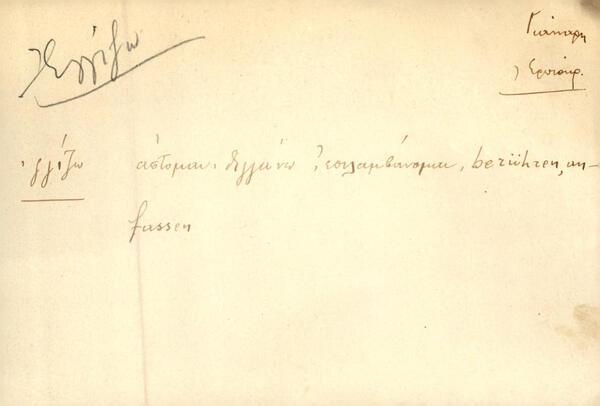 Ἐγγίζω
Γιάνναρη
Ἐρωτόκρ.
ἐγγίζω ἅπτομαι, θιγγάνω, ἐπιλαμβάνομαι, berühren, an-
fassen